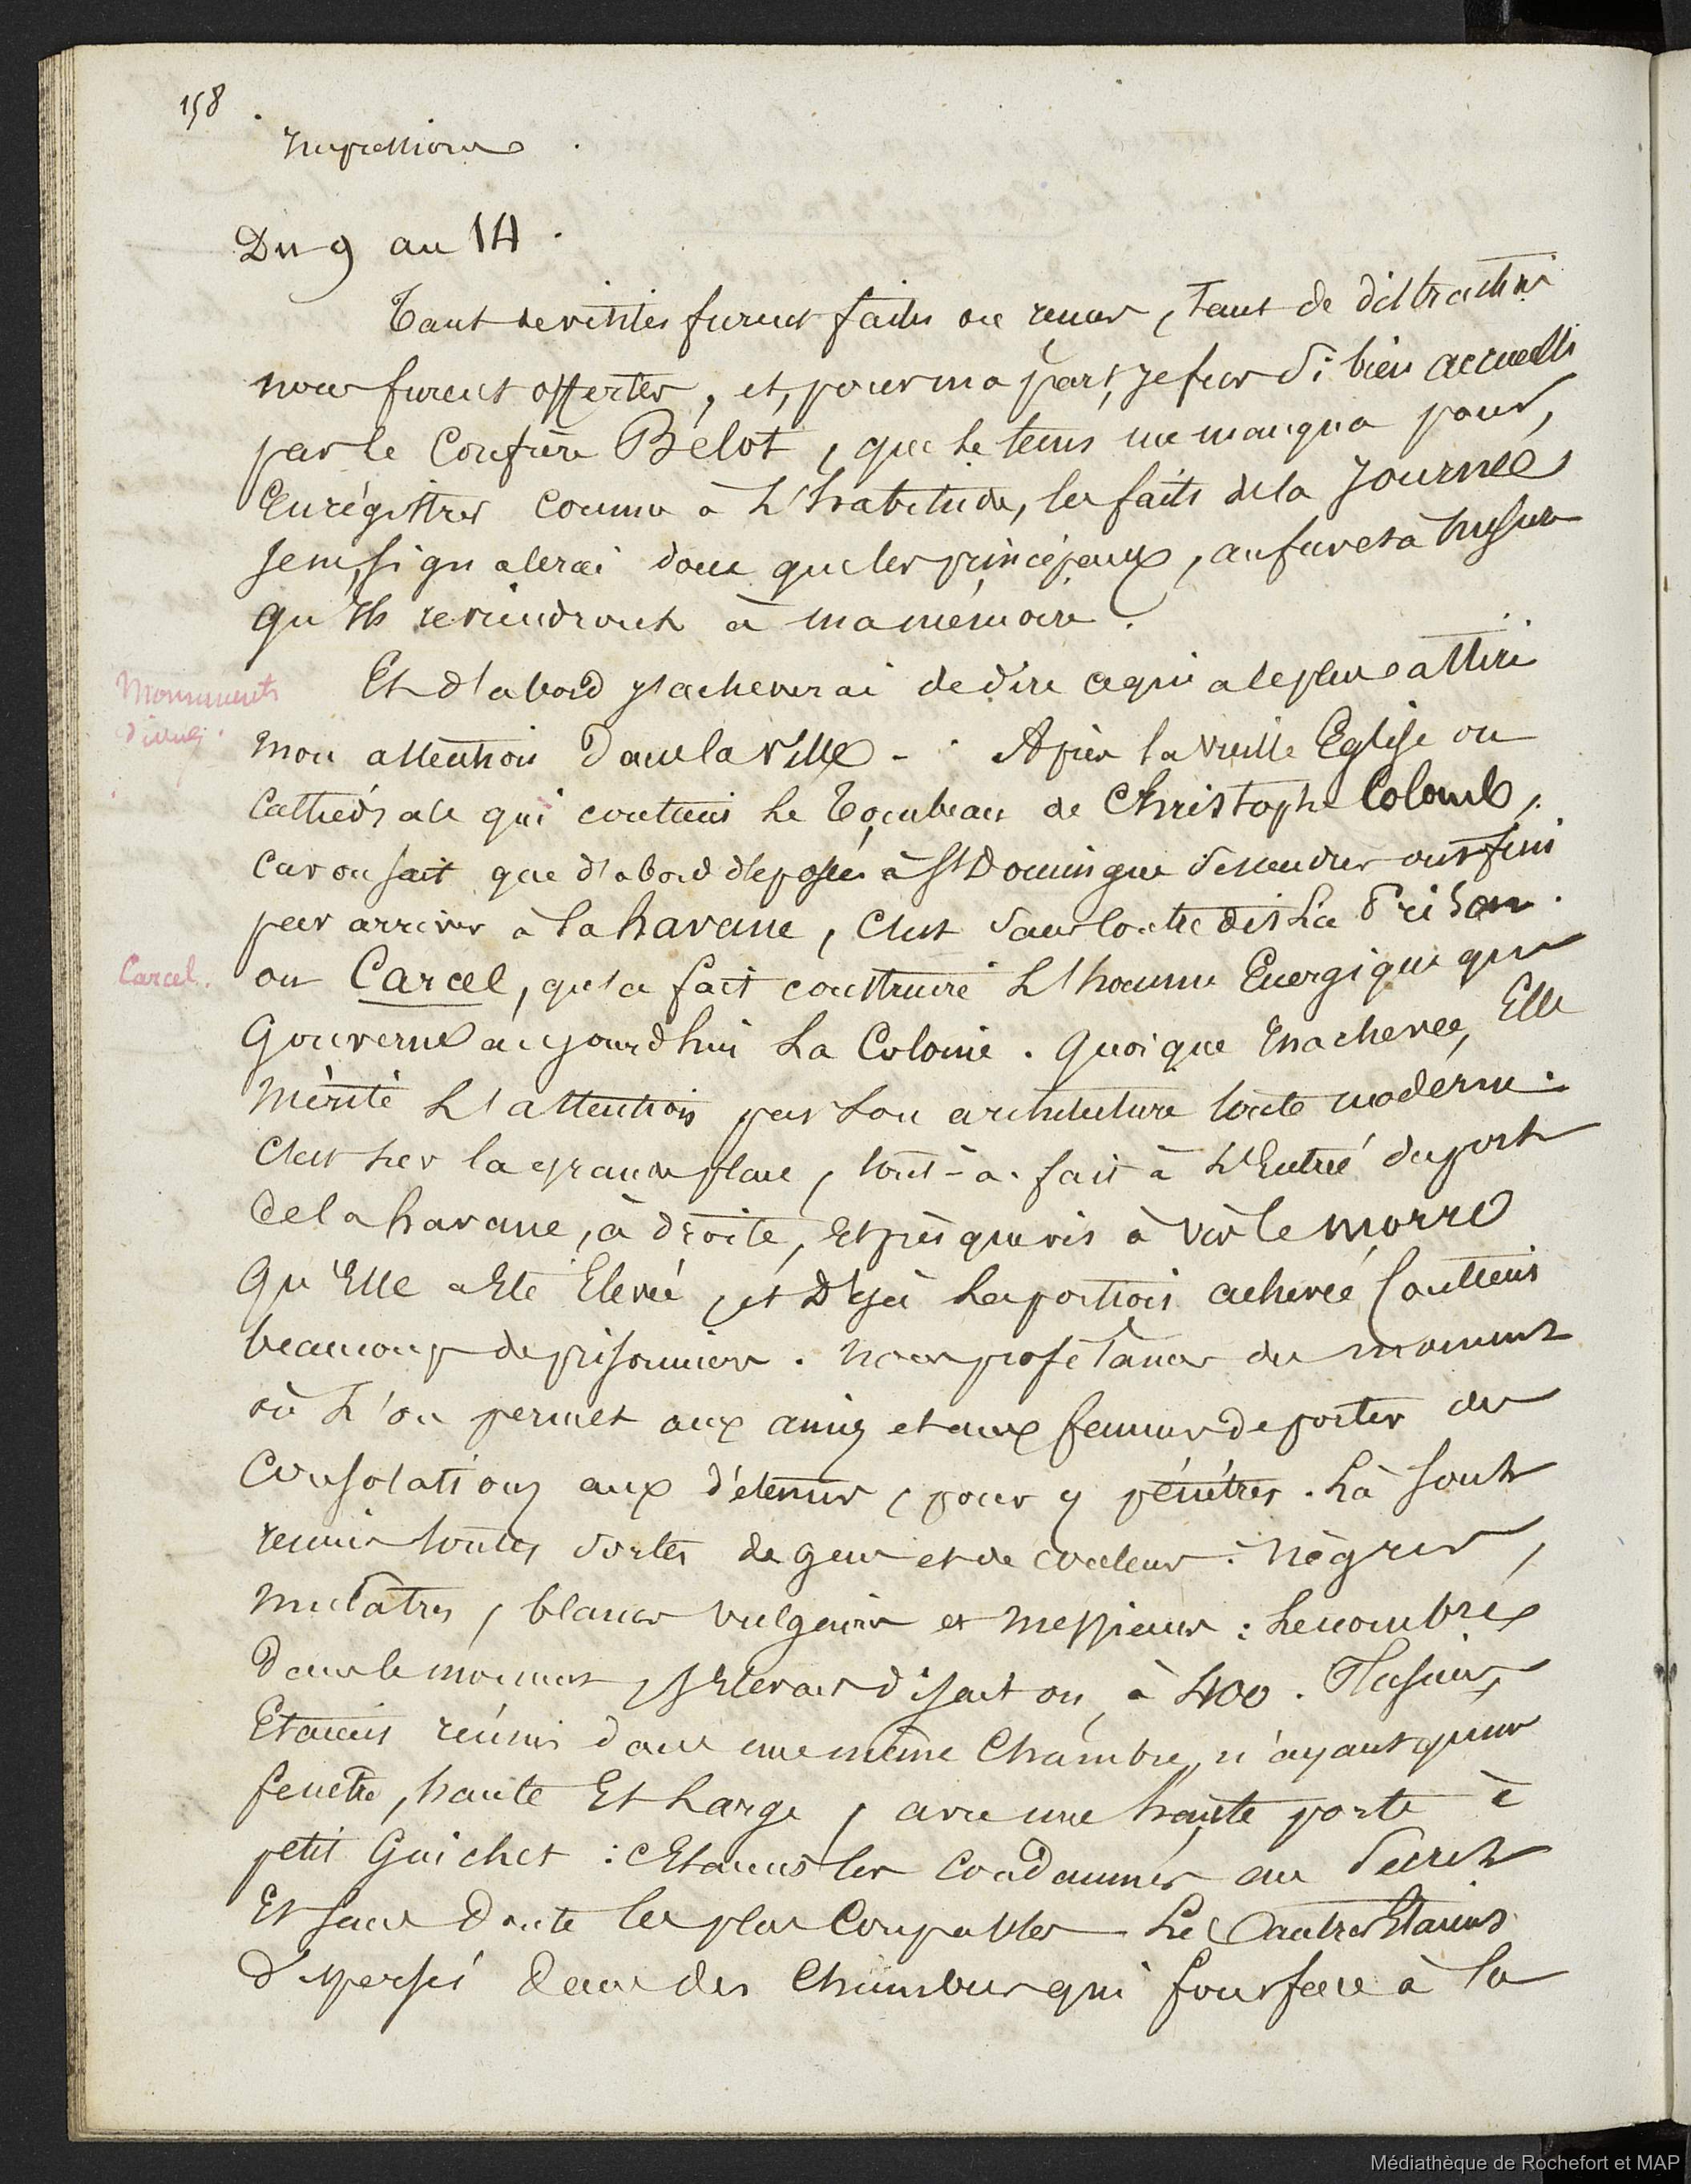 158
Impressions
Du 9 au 14.
Tant de visites furent faites ou reçues, tant de distractions
nous furent offertes, et, pour ma part, je fus si bien accueilli
par le Confrère Bélot, que le tems me manqua pour,
Enrégistrer comme à L'habitude, les faits de la Journée,
Je ne signalerai donc que les principaux, au fur et à Mesure
qu'Ils reviendront à ma mémoire.
Monuments
divers.
Et d'abord j'acheverai de dire ce qui a le plus attiré
mon attention dans la Ville - . Après la Vieille Eglise ou
Cathédrale qui contient Le Tombeau de Christophe Colomb,
Car on sait que d'abord déposées à St Domingue ses cendres ont fini
par arriver à la havane, C'est sans contredit La Prison.
Carcel.
ou Carcel, qu'a fait construire L'homme Energique qui
Gouverne aujourd'hui La Colonie. Quoique Inachevée, Elle
Mérite L'attention par son architecture toute moderne.
C'est sur la grande place, tout-à-fait à L'Entrée du port
de la havane, à droite, Et presque vis à vis le morro
Qu'Elle a Eté Elevée, et Déjà La portion achevée Contient
beaucoup de prisonniers. Nous profitames du moment
où L'on permet aux amis et aux femmes de porter des
Consolations aux détenus, pour y pénétrer. Là sont
reunis toutes sortes de gens et de couleur : Nègres,
Mulâtres, blancs vulgaires et Messieurs : Le nombre,
dans le moment, s'Elevait disait on, à 400. Plusieurs,
Etaient réunis dans une même Chambre, n'ayant qu'une
fenêtre, haute Et Large, avec une haute porte à
petit Guichet : C'Etaient les Condamnés au Secret
Et sans doute les plus Coupables - Les autres Etaient
dispersés dans des Chambres qui font face à la
Médiathèque de Rochefort et MAP